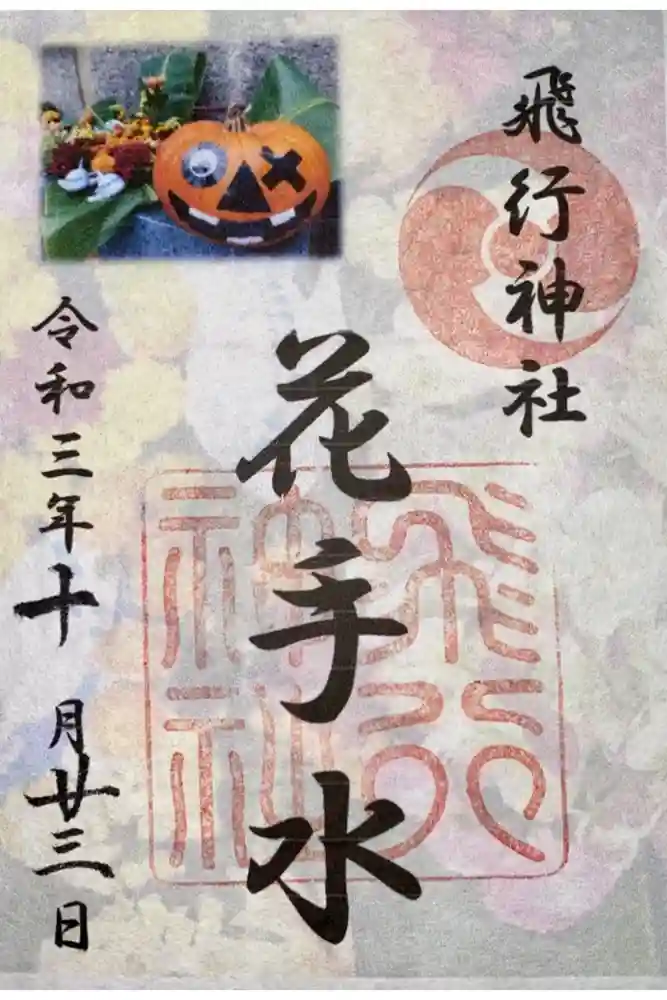 飛行神社
花手水
令和三年十月廿三日
飛行神社